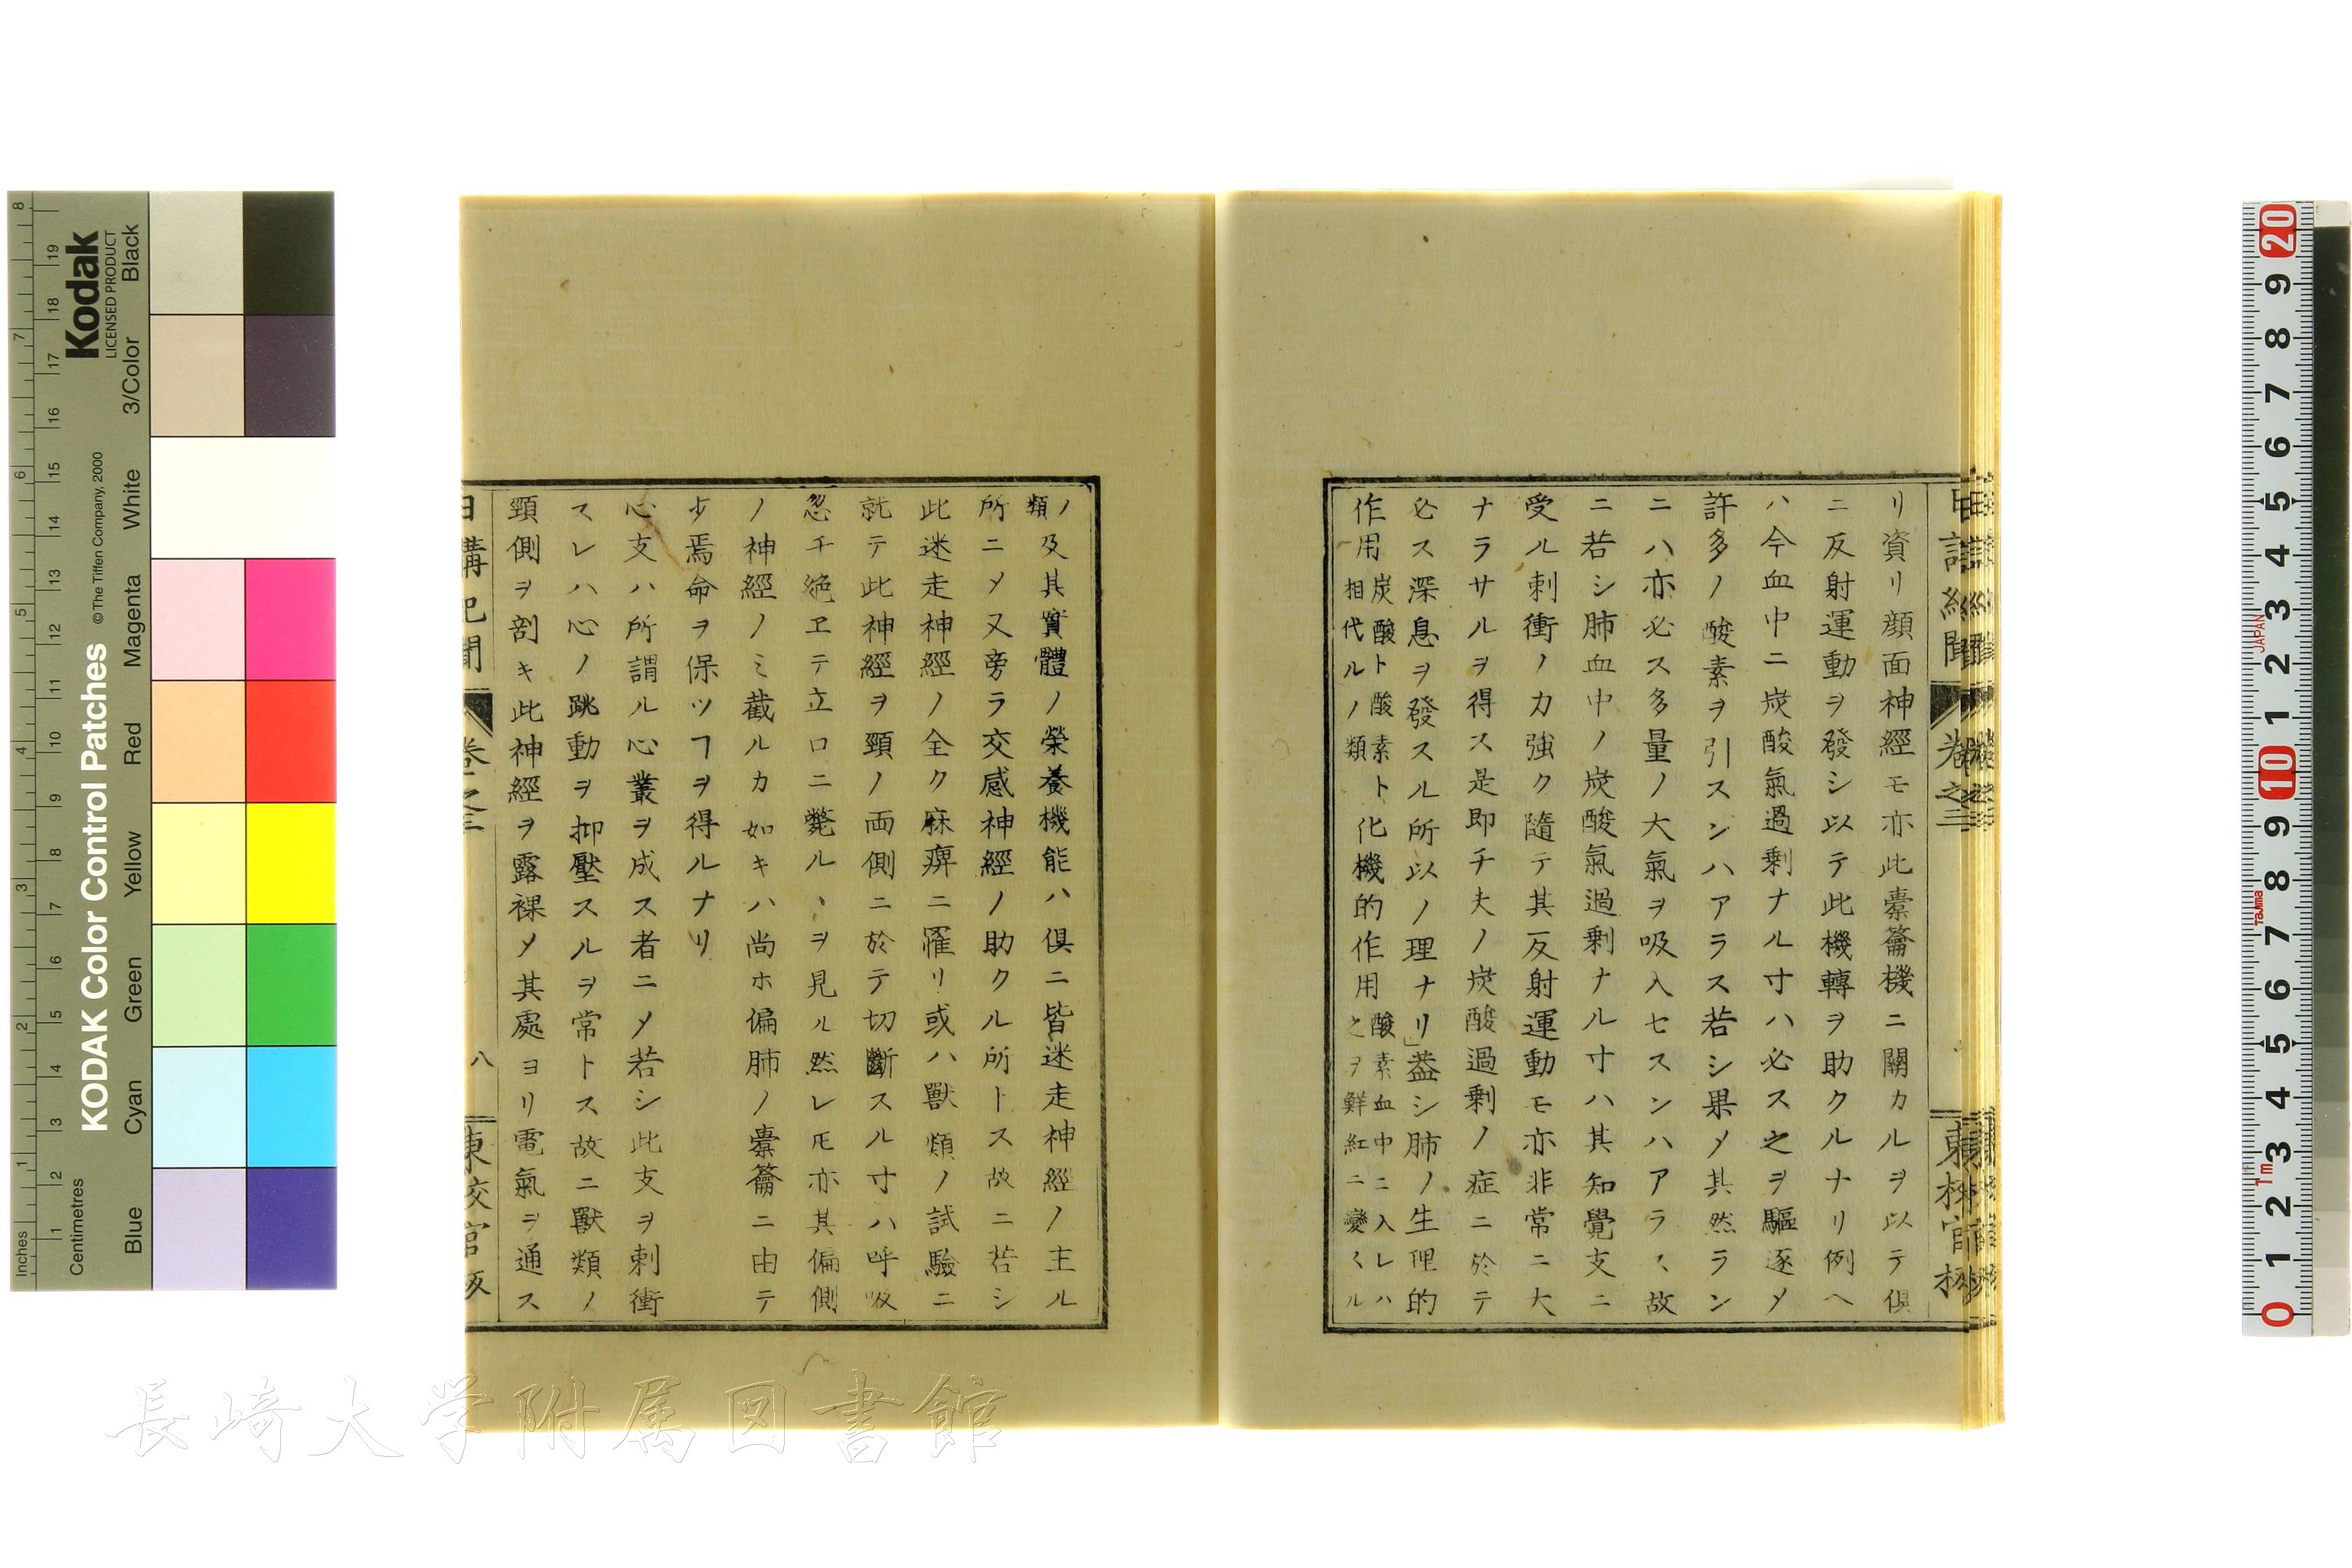 リ資リ顔面神經モ亦此橐籥機ニ關カルヲ以テ倶
ニ反射運動ヲ發シ以テ此機轉ヲ助クルナリ例ヘ
ハ今血中ニ炭酸氣過剰ナル寸ハ必ス之ヲ驅逐〆
許多ノ酸素ヲ引スンハアラス若シ果〆其然ラン
ニハ亦必ス多量ノ大氣ヲ吸入セスンハアラヽ故
ニ若シ肺血中ノ炭酸氣過剰ナル寸ハ其知覺支ニ
受ル刺衝ノカ強ク隨テ其反射運動モ亦非常ニ大
ナラサルヲ得ス是即チ夫ノ炭酸過剰ノ症ニ於テ
必ス深息ヲ發スル所以ノ理ナリ」蓋シ肺ノ生理的
作用炭酸ト酸素ト相代ルノ類ト化機的作用酸素血中ニ入レハ之ヲ鮮紅ニ變スル
ノ類及其實體ノ榮養機能ハ倶ニ皆迷走神經ノ主ル
所ニ〆又旁ラ交感神經ノ助クル所トス故ニ若シ
此迷走神經ノ全ク麻痺ニ罹リ或ハ獸類ノ試驗ニ
就テ此神經ヲ頸ノ両側ニ於テ切斷スル寸ハ呼吸
忽チ絶エテ立ロニ斃ルヽヲ見ル然レ𪜈亦其偏側
ノ神經ノミ截ルカ如キハ尚ホ偏肺ノ橐籥ニ由テ
少焉命ヲ保ツヿヲ得ルナリ
心支ハ所謂ル心叢ヲ成ス者ニ〆若シ此支ヲ刺衝
スレハ心ノ跳動ヲ抑壓スルヲ常トス故ニ獸類ノ
頸側ヲ剖キ此神經ヲ露裸〆其處ヨリ電氣ヲ通ス
日講記聞 卷之三
八
KODAK Color Control Patches
Kodak
LICENSED PRODUCT
© The Tiffen Company, 2000
Inches
Centimetres
Blue Cyan Green Yellow Red Magenta White 3/Color Black
長崎大学附属図書館
JAPAN
Tajima